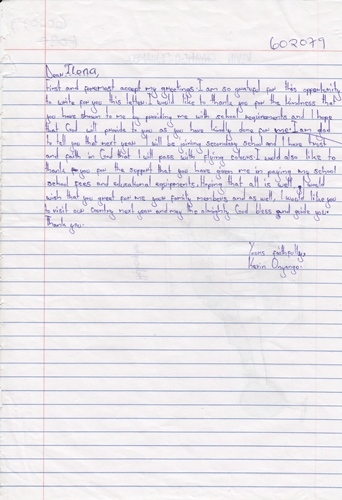 602079
Dear Ilona,
First and foremost accept my greetings. I am so grateful for this opportunity
to write for you this letter. I would like to thank you for the kindness that
you have shown to me by providing me with school requirements and I hope
that God will provide to you as you have kindly done for me. I am glad
to tell you that next year I will be joining secondary school and I have trust
and faith in God that I will pass with flying colours. I would also like to
thank you for the support that you have given me in paying my school
school fees and educational equipments. Hoping that all is well, I would
wish that you great for me your family members and as well, I would like you
to visit our Country next year and may the almighty God bless and guide you.
Thank you.
Yours faithfully,
Kevin Onyango.